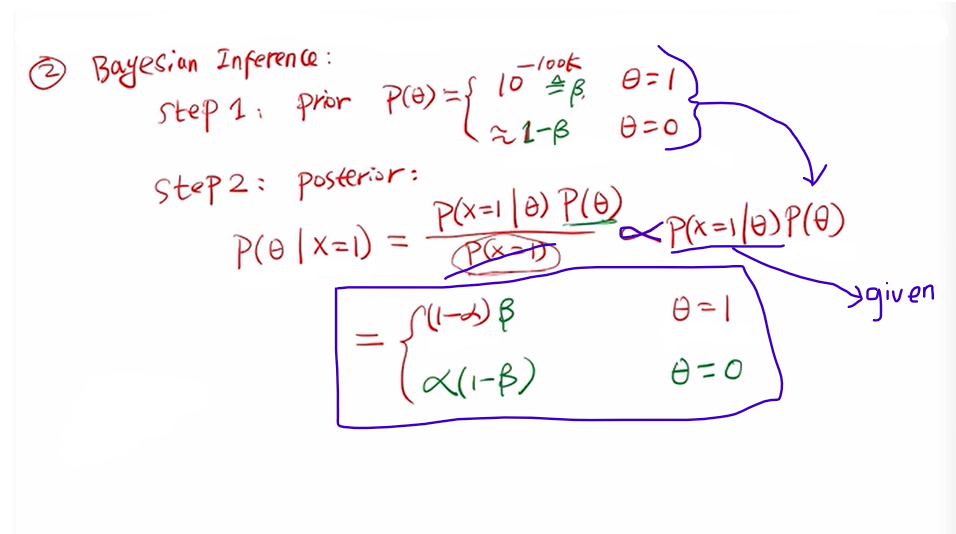 ② Bayesian Inference:
Step 1: prior P(θ) = { 10^-100k ≜ β, θ = 1
≈ 1-β θ = 0
Step 2: posterior:
P(θ | x=1) = P(x=1 | θ) P(θ) / P(x=1) ∝ P(x=1 | θ) P(θ)
given
= { (1-α) β θ = 1
α(1-β) θ = 0